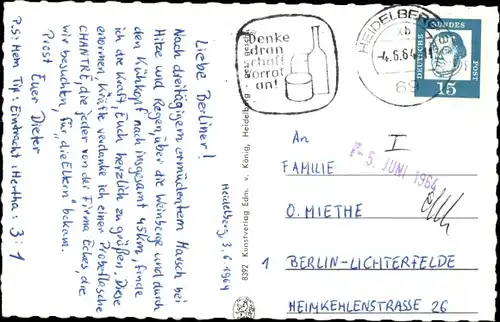 Heidelberg, 3.6.1964
Liebe Berliner!
Nach dreitägigem ermüdentem Marsch bei
Hitze und Regen, über die Weinberge und durch
den Kühlkopf nach insgesamt 45 km, finde
ich die Kraft, Euch herzlich zu grüßen. Diese
enormen Kräfte verdanke ich einer Probeflasche
CHANTRÉ, die jeder von der Firma Eckes, die
wir besuchten, für „die Eltern" bekam.
Prost Euer Dieter
P.S: Mein Tip: Eintracht : Hertha: 3:1
8392 Kunstverlag Edm. v. König, Heidelberg
ges. gesch.
Denke
dran
schaff
Vorrat
an!
HEIDELBERG
-4.6.64
69
DEUTSCHE BUNDESPOST
15
I
-5. JUNI 1964
AN
FAMILIE
O. MIETHE
1 BERLIN-LICHTERFELDE
HEIMKEHLENSTRASSE 26